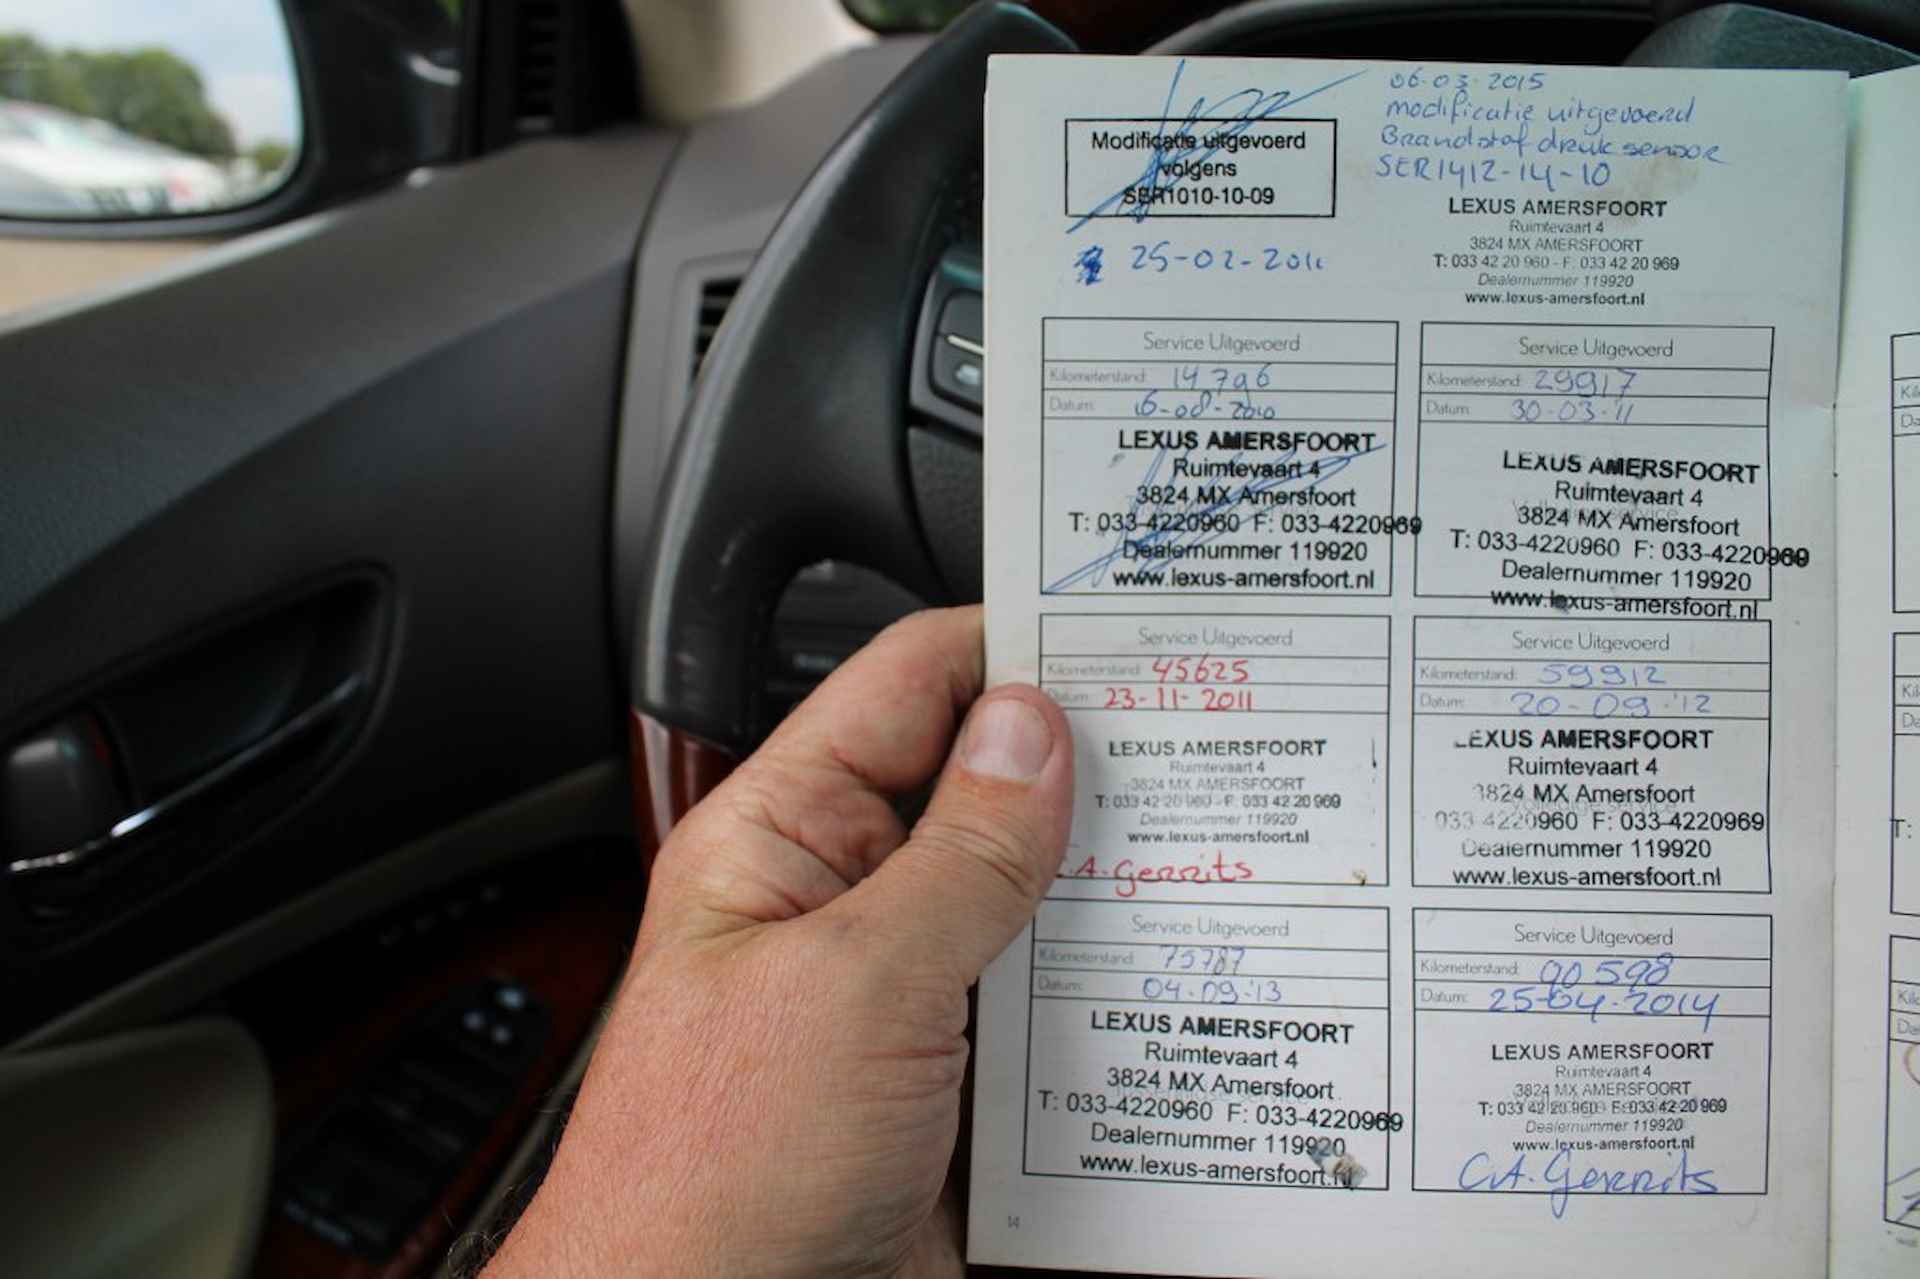 Modificatie uitgevoerd
volgens
SER1010-10-09
25-02-2011
06-03-2015
modificatie uitgevoerd
Brandstof druk sensor
SER1412-14-10
LEXUS AMERSFOORT
Ruimtevaart 4
3824 MX AMERSFOORT
T: 033 42 20 960 - F: 033 42 20 969
Dealernummer 119920
www.lexus-amersfoort.nl
Service Uitgevoerd
Kilometerstand: 14796
Datum: 16-08-2010
LEXUS AMERSFOORT
Ruimtevaart 4
3824 MX Amersfoort
T: 033-4220960 F: 033-4220969
Dealernummer 119920
www.lexus-amersfoort.nl
Service Uitgevoerd
Kilometerstand: 29917
Datum: 30-03-11
LEXUS AMERSFOORT
Ruimtevaart 4
3824 MX Amersfoort
T: 033-4220960 F: 033-4220969
Dealernummer 119920
www.lexus-amersfoort.nl
Service Uitgevoerd
Kilometerstand: 45625
Datum: 23-11-2011
LEXUS AMERSFOORT
Ruimtevaart 4
3824 MX AMERSFOORT
T: 033 42 20 960 - F: 033 42 20 969
Dealernummer 119920
www.lexus-amersfoort.nl
.A. Gerrits
Service Uitgevoerd
Kilometerstand: 59912
Datum: 20-09-'12
LEXUS AMERSFOORT
Ruimtevaart 4
3824 MX Amersfoort
Volledige service
033-4220960 F: 033-4220969
Dealernummer 119920
www.lexus-amersfoort.nl
Service Uitgevoerd
Kilometerstand: 75787
Datum: 04-09-'13
LEXUS AMERSFOORT
Ruimtevaart 4
3824 MX Amersfoort
T: 033-4220960 F: 033-4220969
Dealernummer 119920
www.lexus-amersfoort.nl
Service Uitgevoerd
Kilometerstand: 90598
Datum: 25-04-2014
LEXUS AMERSFOORT
Ruimtevaart 4
3824 MX AMERSFOORT
T: 033 42 20 960 - F: 033 42 20 969
Dealernummer 119920
www.lexus-amersfoort.nl
C.A. Gerrits
14